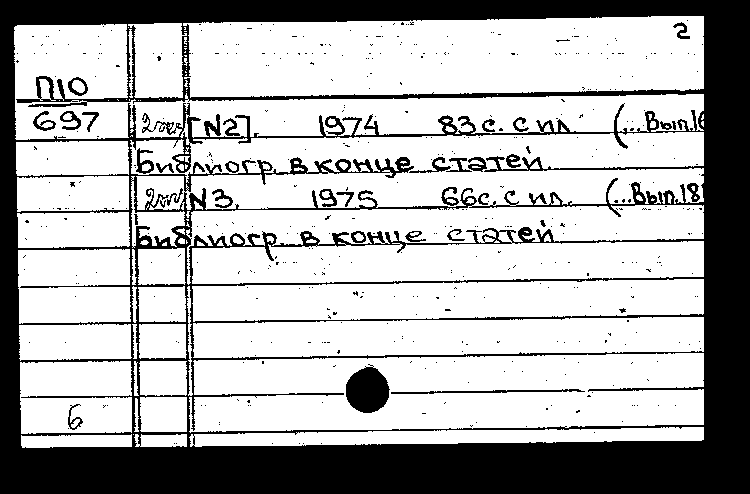 2
П10
697 2 экз [N2]. 1974 83 с. с ил. (...Вып.16
Библиогр. в конце статей.
2 экз N 3. 1975 66с. с ил. (...Вып.181
Библиогр. в конце статей.
б